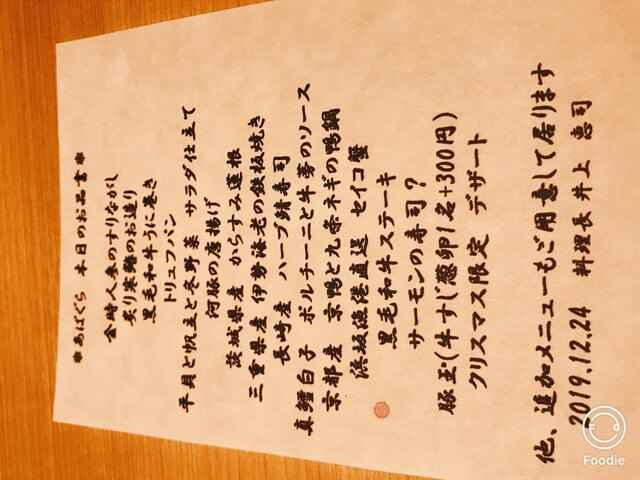 ＊あばぐら 本日のお品書＊
金時人参のすりながし
炙り寒鰆のお造り
黒毛和牛うに巻き
トリュフパン
平貝と帆立と冬野菜 サラダ仕立て
河豚の唐揚げ
茨城県産 からすみ蓮根
三重県産 伊勢海老の鉄板焼き
長崎産 ハーブ鯖寿司
真鱈白子 ポルチーニと牛蒡のソース
京都産 京鴨と九条ネギの鴨鍋
浜坂漁港直送 セイコ蟹
黒毛和牛ステーキ
サーモンの寿司？
豚玉(牛すじ葱卵1名+300円)
クリスマス限定 デザート
他、追加メニューもご用意して居ります
2019.12.24 料理長 井上 恵司
Foodie